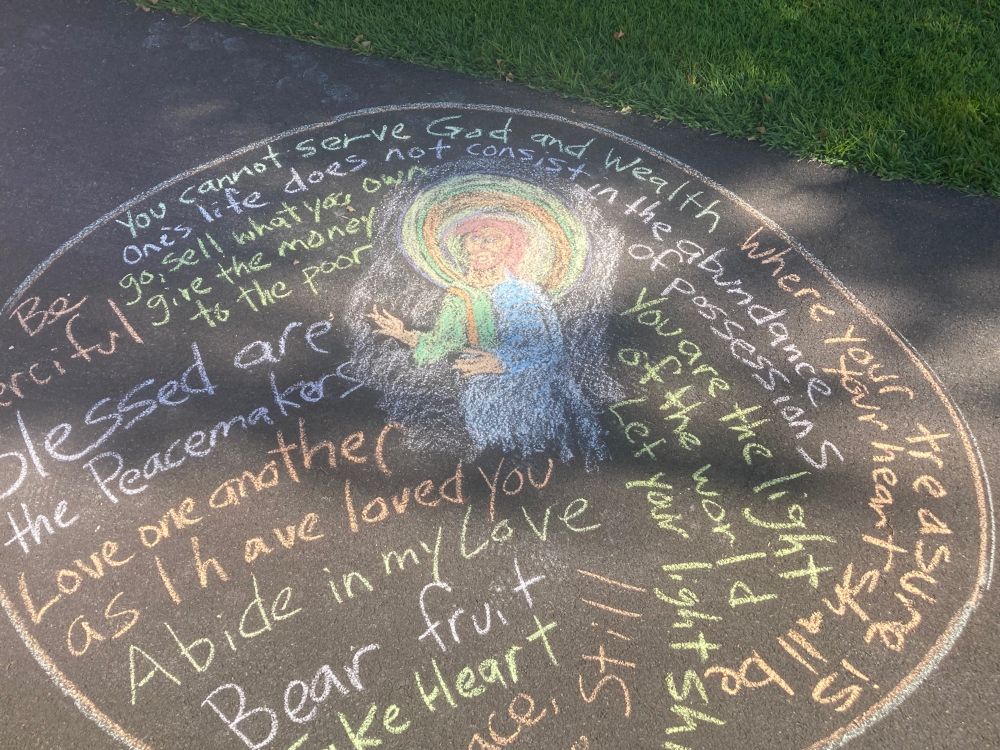 You cannot serve God and Wealth
One's life does not consist in the abundance
of possessions
go, sell what you own
give the money
to the poor
Where your treasure is
your heart shall be
Be
merciful
Blessed are
the Peacemakers
You are the light
of the world
Let your light sh
Love one another
as I have loved you
Abide in my Love
Bear fruit
ake Heart
ace, Still